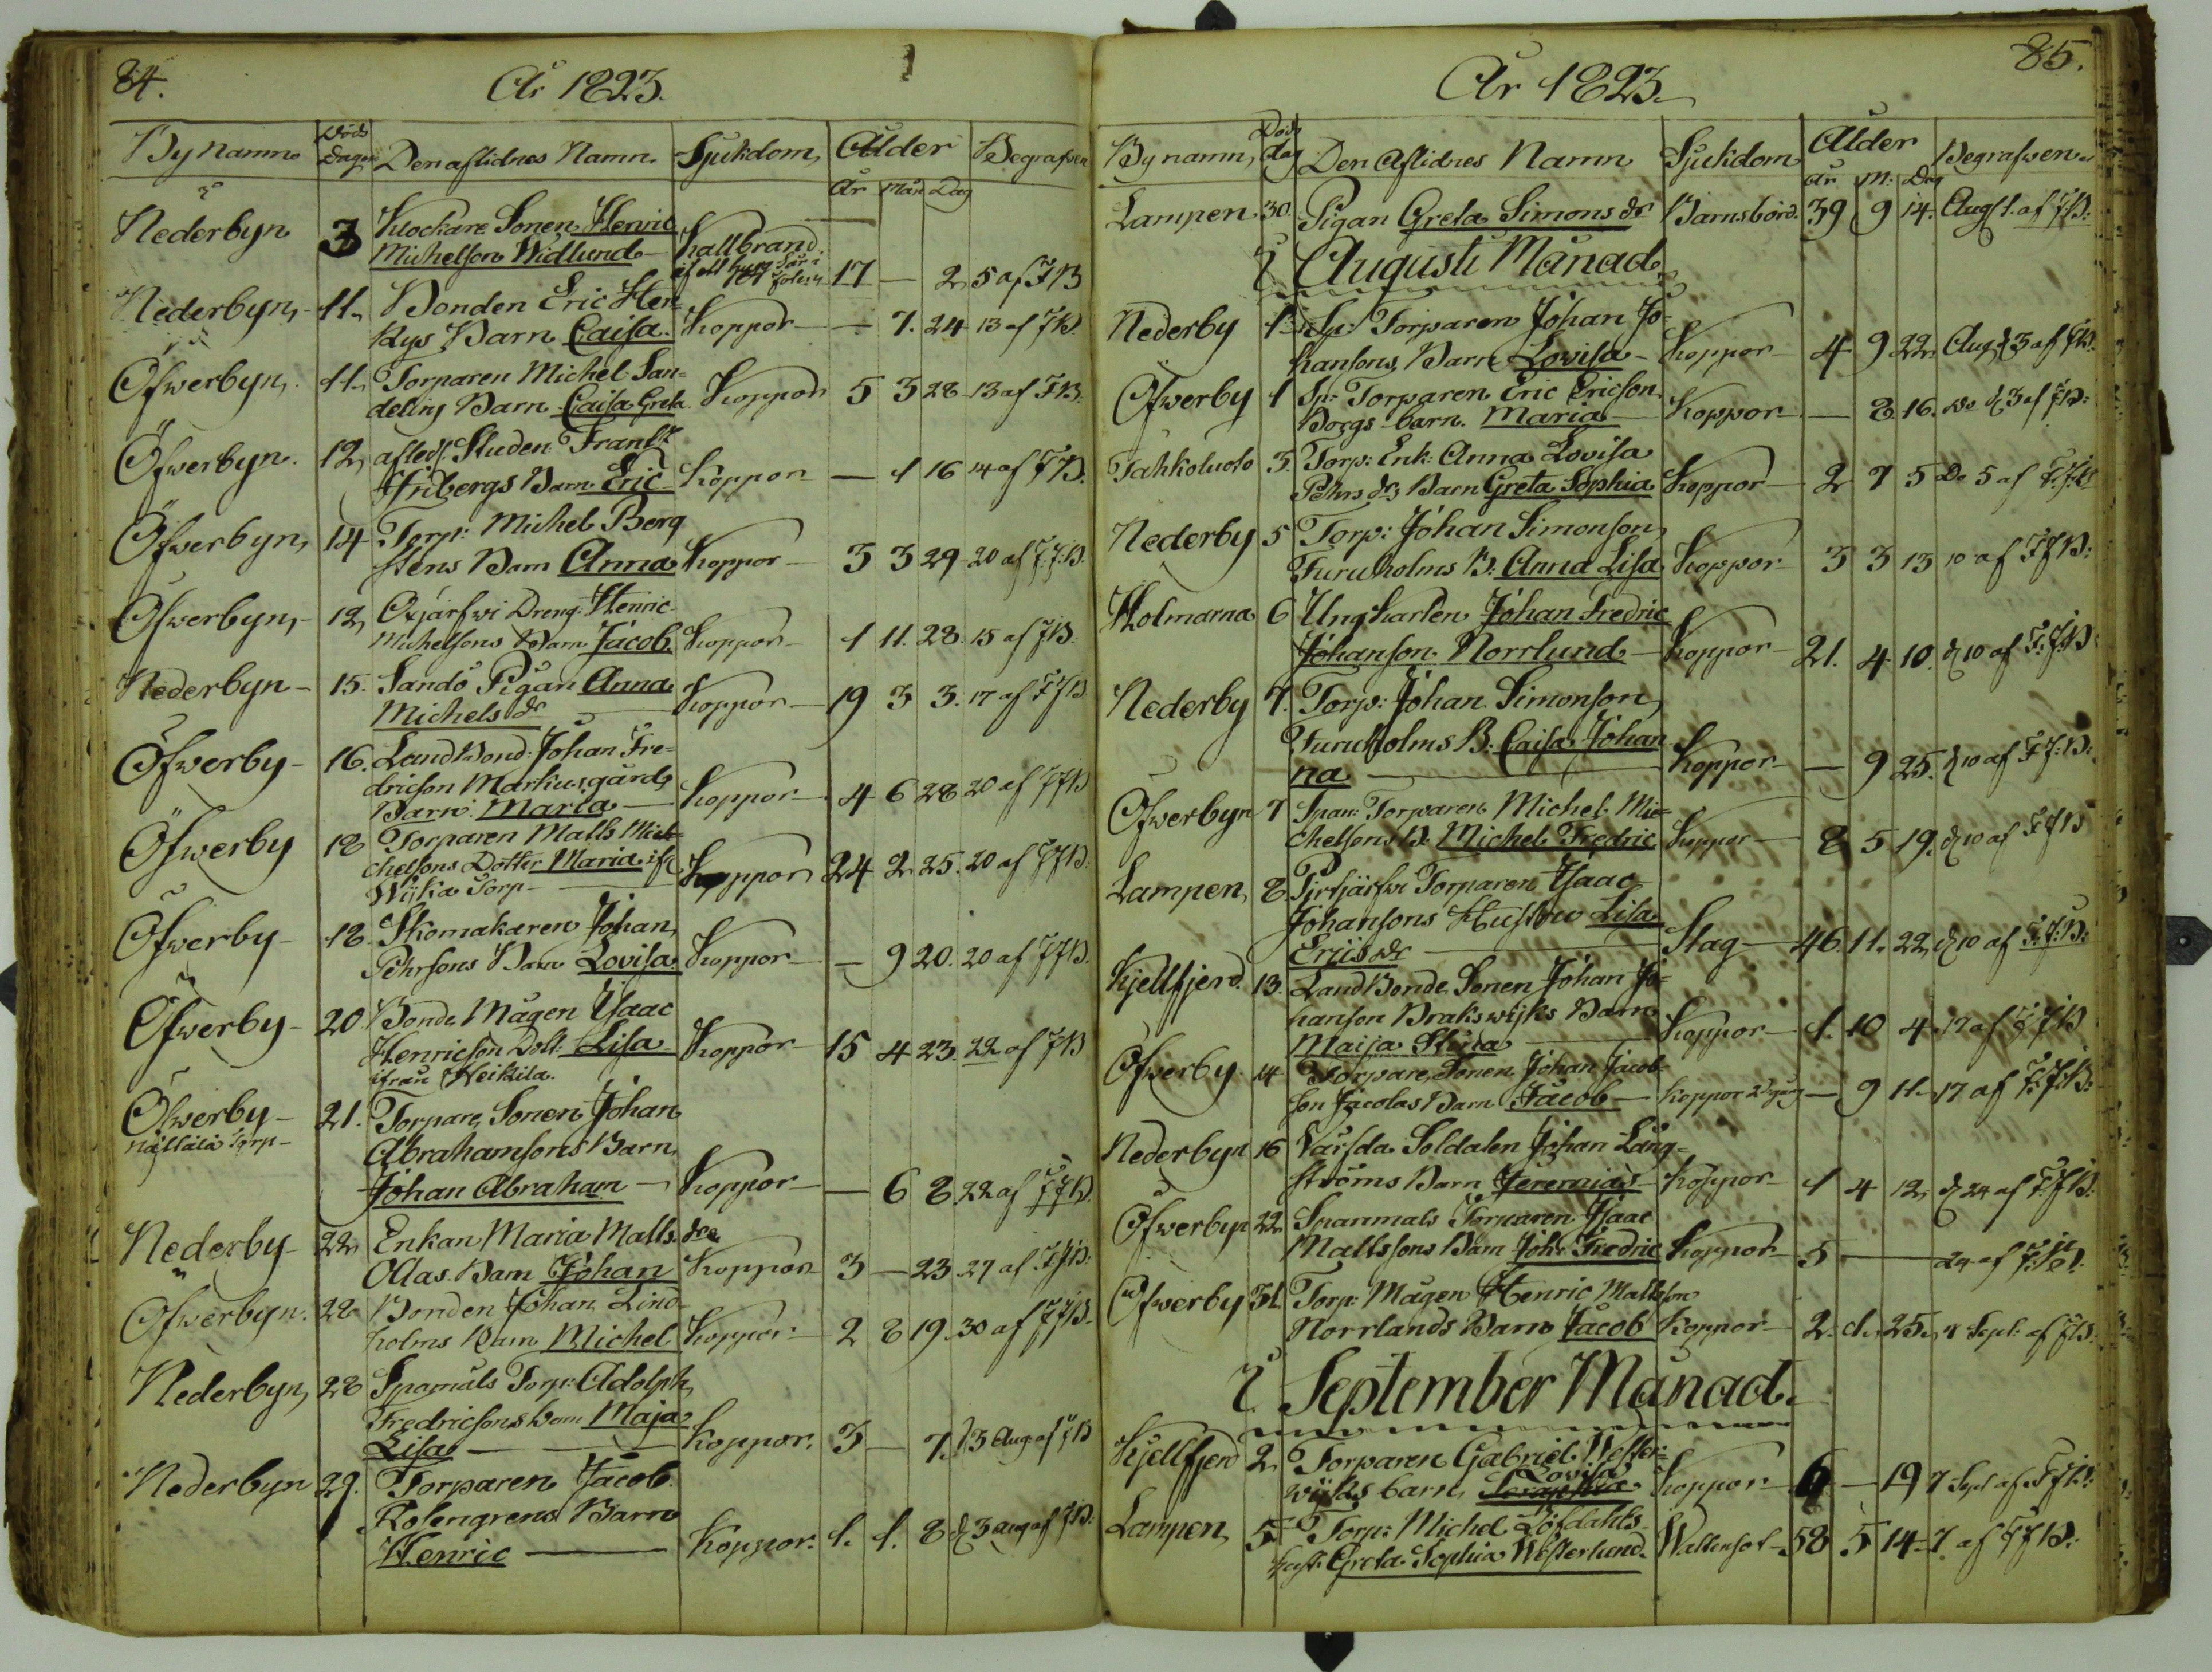 84.
År 1823.
By namn Döds Dagen Den aflidnes Namn. Sjukdom, Ålder Begrafven
År Mån Dag
Nederbyn 3 Klockare Sonen Henric
Michelson Widlund Kallbrand 17 — 2 5 af FB
Nederbyn, 11. Bonden Eric Hen-
Kys Barn Caisa. Koppor — 7. 24 13 af FB.
Öfwerbyn. 11. Torparen Michel San=
deling Barn Caisa Greta Koppor 5 3 28 13 af FB.
Öfwerbyn. 12, afled: Studen Frans
Fribergs Barn Eric Koppor — 1 16 14 af FB.
Öfwerbyn, 14 Torp: Michel Berg
stens Barn Anna Koppor 3 3 29 20 af F.J.B.
Öfwerbyn, 12, Oxjärfwi Dreng: Henric
Michelsons Barn Jacob Koppor 1 11. 28. 15 af FB.
Nederbyn 15. Sandö Pigan Anna
Michels dr Koppor 19 3 3. 17 af FJB
Öfwerby 16. Land Bond: Johan Fre=
dricson Markusgårds
Barn: Maria Koppor 4 6 28 20 af FJB
Öfwerby 18 Torparen Matts Mic-
chelsons Dotter Maria if
Wijka Torp Koppor 24 2 25. 20 af FJB.
Öfwerby 18. Skomakaren Johan
Pehrsons Barn Lovisa Koppor — 9 20. 20 af FJB.
Öfwerby 20. Bonde Mågen Isaac
Henricson Dott: Lisa Koppor 15 4 23. 22 af FB
ifrån Heikila.
Öfwerby 21. Torpare Sonen Johan
Abrahamsons Barn
Johan Abraham Koppor — 6 8 22 af FJB.
Nederby 22, Enkan Maria Matts dr
Ollas Barn Johan Koppor 3 — 23 27 af FJB.
Öfwerbyn. 28 Bonden Johan Lind-
holms Barn Michel Koppor 2 8 19. 30 af FJB.
Nederbyn, 28 Spamåls Torp: Adolph
Fredricsons barn Maja
Lisa Koppor. 3 — 7. d 3 Aug af FB
Nederbyn 29. Torparen Jacob
Rosengrens Barn
Henric Koppor. 1. 1. 8 d 3 aug af FB.
85.
År 1823.
By namn, Döds dag Den Aflidnes Namn Sjukdom Ålder Begrafwen
År M: Dag
Lampen 30. Pigan Greta Simons dr Barnsbörd. 39 9 14. Aug 1. af FB.
i Augusti Månad
Nederby 1. Sp: Torparen Johan Jo-
hansons, Barn Lovisa Koppor 4 9 22, Aug d 3 af FB.
Öfwerby 1 Sp: Torparen Eric Ericson
Borgs barn. Maria Koppor — 8. 16. do d 3 af FB:
Tahkoluoto 3. Torp: Enk: Anna Lovisa
Pehrs dr Barn Greta Sophia Koppor 2 7 5 Do 5 af F.J.B
Nederby 5 Torp: Johan Simonson
Furuholms B: Anna Lisa Koppor 3 3 13 10 af FJB:
Holmarna 6 Ungkarlen Johan Fredric
Johanson Norrlund Koppor 21. 4. 10. d 10 af F.J.B
Nederby 7. Torp: Johan Simonson
Furuholms B: Caisa Johan
na Koppor — 9 25. d 10 af F.J.B:
Öfwerbyn 7 Span: Torparen Michel Mic-
chelsons B. Michel Fredric Koppor 8 5 19. d 10 af FJB
Lampen, 8. Pirtjärfwi Torparen Isaac
Johansons Hustru Lisa
Erics dr Slag 46. 11. 22, d 10 af F.J.B:
Kjellfjerd. 13. Land Bonde Sonen Johan Jo-
hanson Brakswijks Barn
Maija Stina Koppor 1. 10 4 17 af FJB
Öfwerby. 14 Torpare Sonen Johan Jacob-
son Jacolas Barn Jacob Koppor — 9 11 17 af F.J.B:
Nederbyn 16 Soldaten Johan Lång-
ströms Barn Jeremias Koppor 1 4 12, d 24 af F.J.B.
Öfwerbyn 22. Spanmåls Torparen Isaac
Mattssons Barn Joh: Fredric Koppor 5 — 24 af F.J.B.
Öfwerby 31. Torp: Mågen Henric Mattson
Norrlands Barn Jacob Koppor 2. 1. 25, Sept: af FB.
i September Månad.
Kjellfjerd 2, Torparen Gabriel Wester-
Lovisa
wijks barn, Koppor 6 — 19 7 Sept af FJB:
Lampen, 5 Torp: Michel Löfdahls
hust: Greta Sophia Westerlund. Wattensot 58 5 14 7. af FJB.